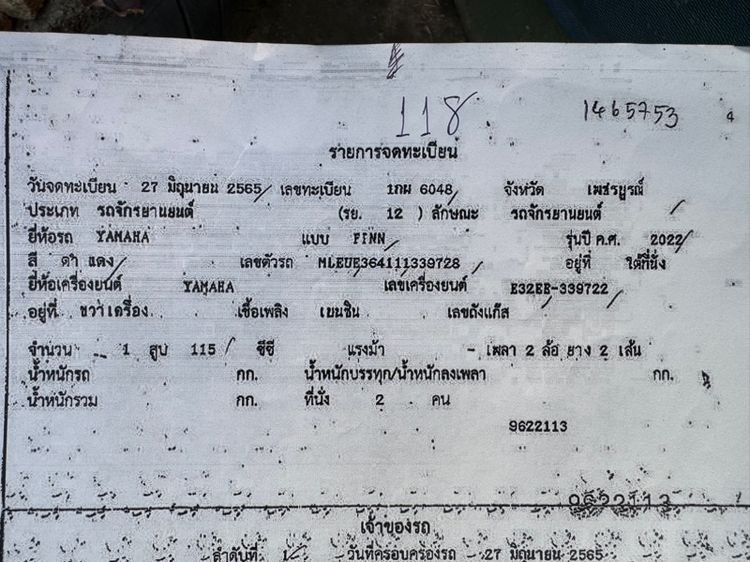 118
1465753
4
รายการจดทะเบียน
วันจดทะเบียน 27 มิถุนายน 2565 เลขทะเบียน 1กผ 6048 จังหวัด เพชรบูรณ์
ประเภท รถจักรยานยนต์ (รย. 12 ) ลักษณะ รถจักรยานยนต์
ยี่ห้อรถ YAMAHA แบบ FINN รุ่นปี ค.ศ. 2022
สี ดำ แดง เลขตัวรถ MLEUE364111339728 อยู่ที่ ใต้ที่นั่ง
ยี่ห้อเครื่องยนต์ YAMAHA เลขเครื่องยนต์ E32EE-339722
อยู่ที่ ขวาเครื่อง เชื้อเพลิง เบนซิน เลขถังแก๊ส
จำนวน 1 สูบ 115 ซีซี แรงม้า - เพลา 2 ล้อ ยาง 2 เส้น
น้ำหนักรถ กก. น้ำหนักบรรทุก/น้ำหนักลงเพลา กก.
น้ำหนักรวม กก. ที่นั่ง 2 คน
9622113
9622113
เจ้าของรถ
ลำดับที่ 1 วันที่ครอบครองรถ 27 มิถุนายน 2565